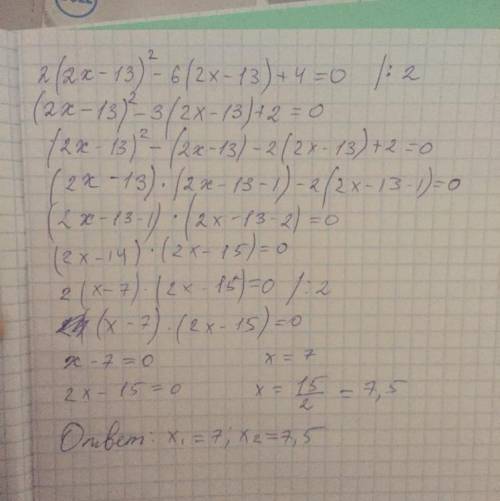 2(2x-13)² - 6(2x-13) + 4 = 0 /: 2
(2x-13)² - 3(2x-13) + 2 = 0
(2x-13)² - (2x-13) - 2(2x-13) + 2 = 0
(2x-13)·(2x-13-1) - 2(2x-13-1) = 0
(2x-13-1)·(2x-13-2) = 0
(2x-14)·(2x-15) = 0
2(x-7)·(2x-15) = 0 /: 2
(x-7)·(2x-15) = 0
x-7=0 x=7
2x-15=0 x = 15/2 = 7,5
Ответ: x₁=7; x₂=7,5